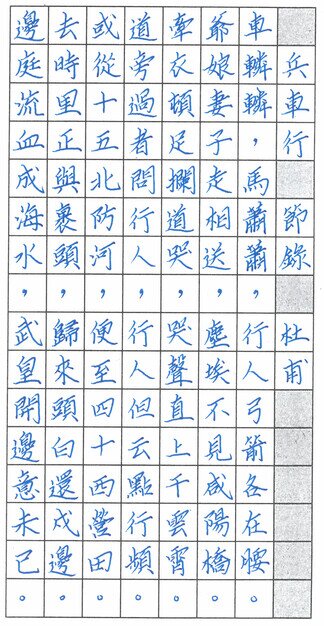 兵車行 節錄 杜甫
車轔轔，馬蕭蕭，行人弓箭各在腰。
爺娘妻子走相送，塵埃不見咸陽橋。
牽衣頓足攔道哭，哭聲直上干雲霄。
道旁過者問行人，行人但云點行頻。
或從十五北防河，便至四十西營田。
去時里正與裹頭，歸來頭白還戍邊。
邊庭流血成海水，武皇開邊意未已。